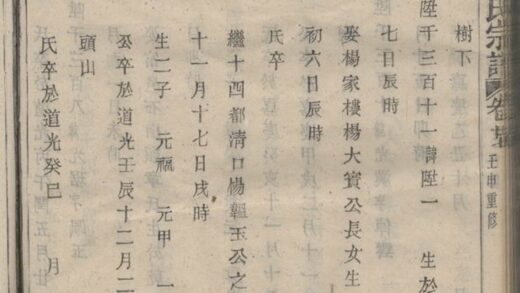 氏宗譜 卷 壬申重修
樹下
陞千三百十一諱陞一 生於
七日辰時
娶楊家樓楊大賓公長女生
初六日辰時
氏卒
繼十四都清口楊韞玉公之
十一月十七日戌時
生二子 元福 元甲 一
公卒於道光壬辰十二月二
頭山
氏卒於道光癸巳 月